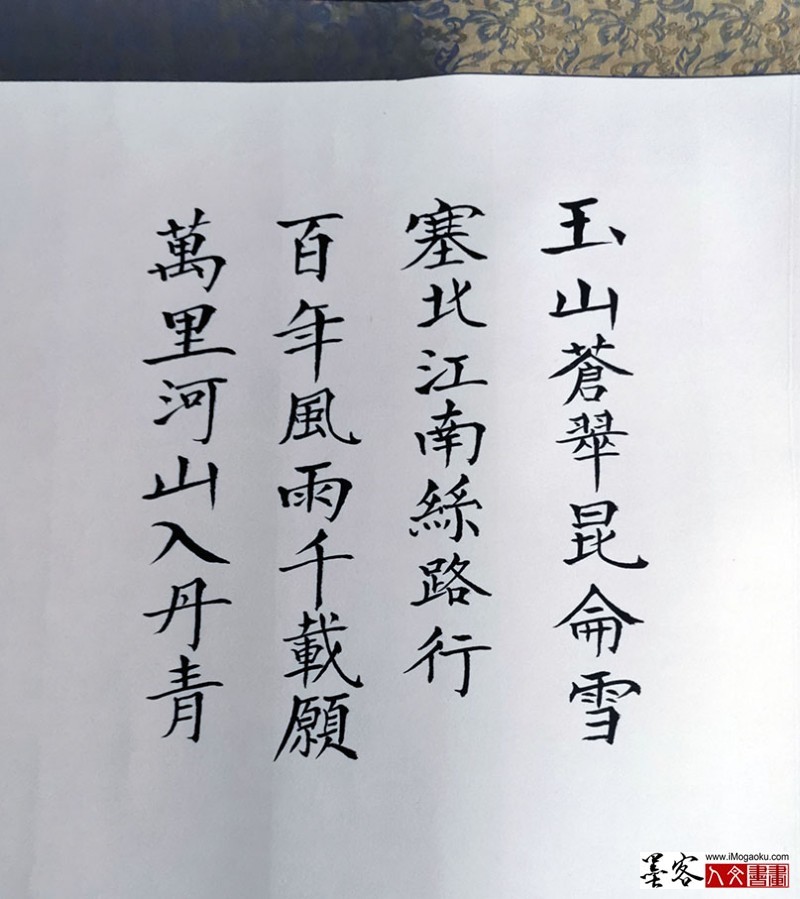 玉山蒼翠昆侖雪
塞北江南絲路行
百年風雨千載願
萬里河山入丹青
墨客
www.iMogaoku.com
人文書畫